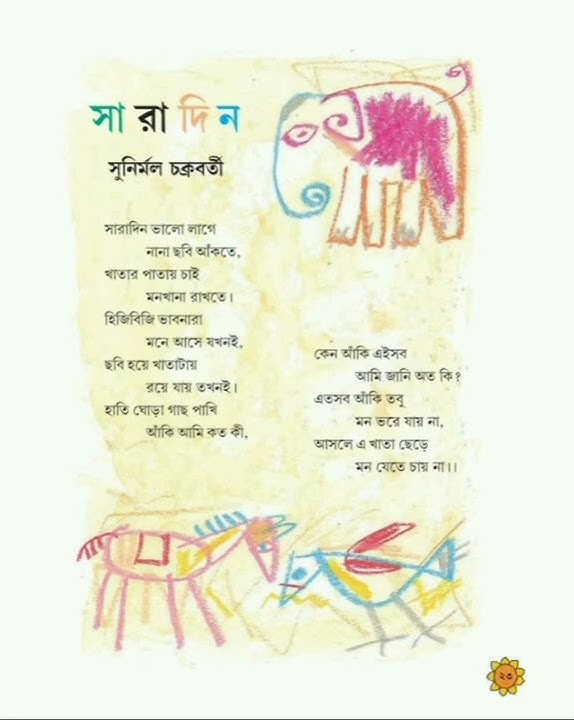 সারাদিন
সুনির্মল চক্রবর্তী
সারাদিন ভালো লাগে
নানা ছবি আঁকতে,
খাতার পাতায় চাই
মনখানা রাখতে।
হিজিবিজি ভাবনারা
মনে আসে যখনই,
ছবি হয়ে খাতাটায়
রয়ে যায় তখনই।
হাতি ঘোড়া গাছ পাখি
আঁকি আমি কত কী,
কেন আঁকি এইসব
আমি জানি অত কি?
এতসব আঁকি তবু
মন ভরে যায় না,
আসলে এ খাতা ছেড়ে
মন যেতে চায় না।।
২৩